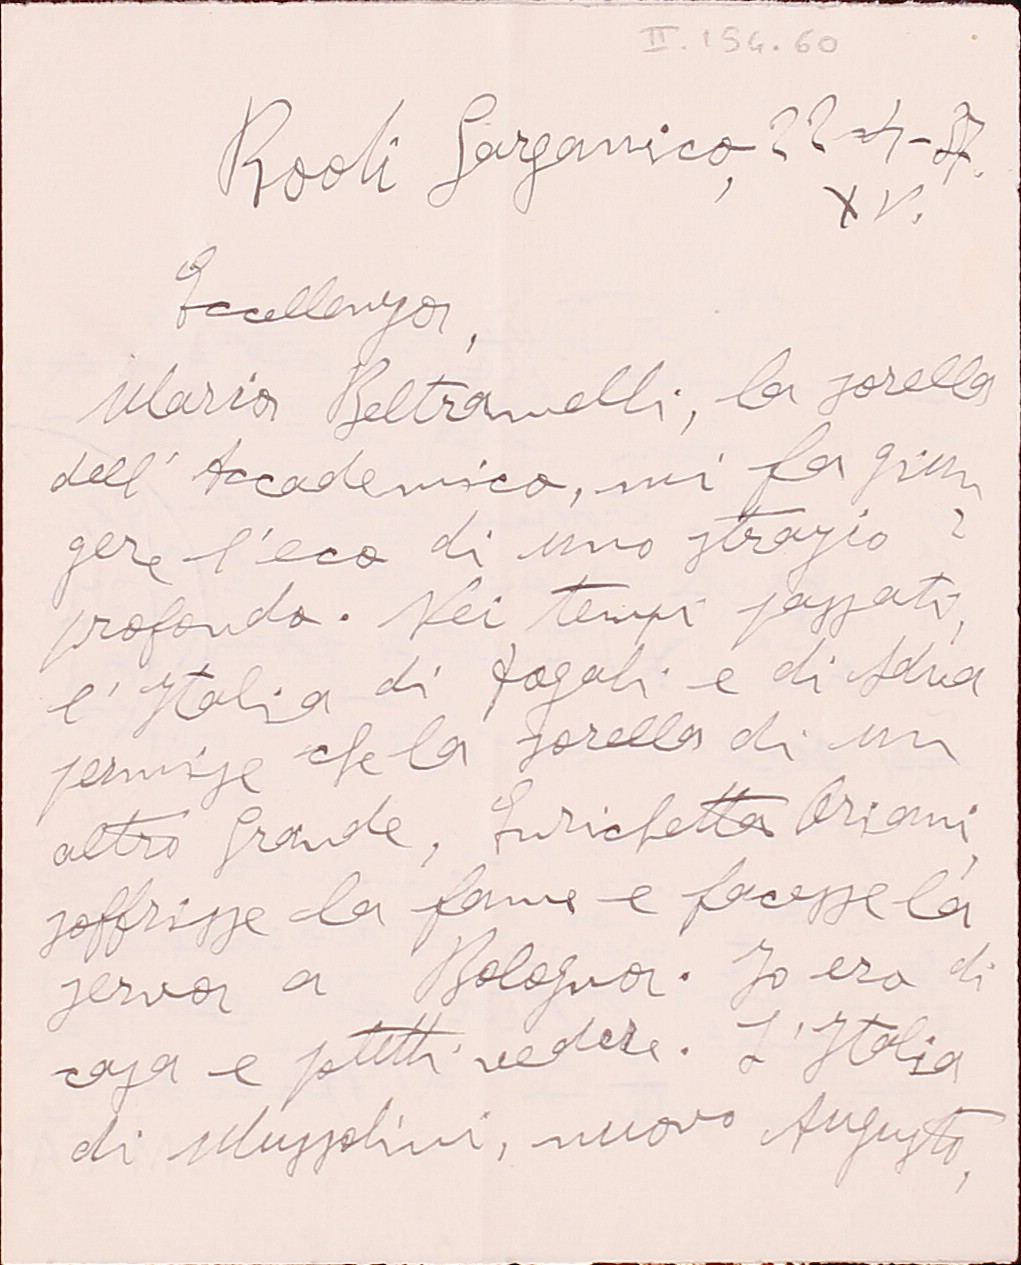 II.154.60
Rodi Garganico, 22-4-37.
XV.
Eccellenza,
Maria Beltramelli, la sorella
dell'Accademico, mi fa giun
gere l'eco di uno strazio
profondo. Nei tempi passati,
l'Italia di Dogali e di Adua
permise che la sorella di un
altro Grande, Enrichetta Oriani,
soffrisse la fame e facesse la
serva a Bologna. Io ero di
casa e potetti vedere. L'Italia
di Mussolini, nuovo Augusto,